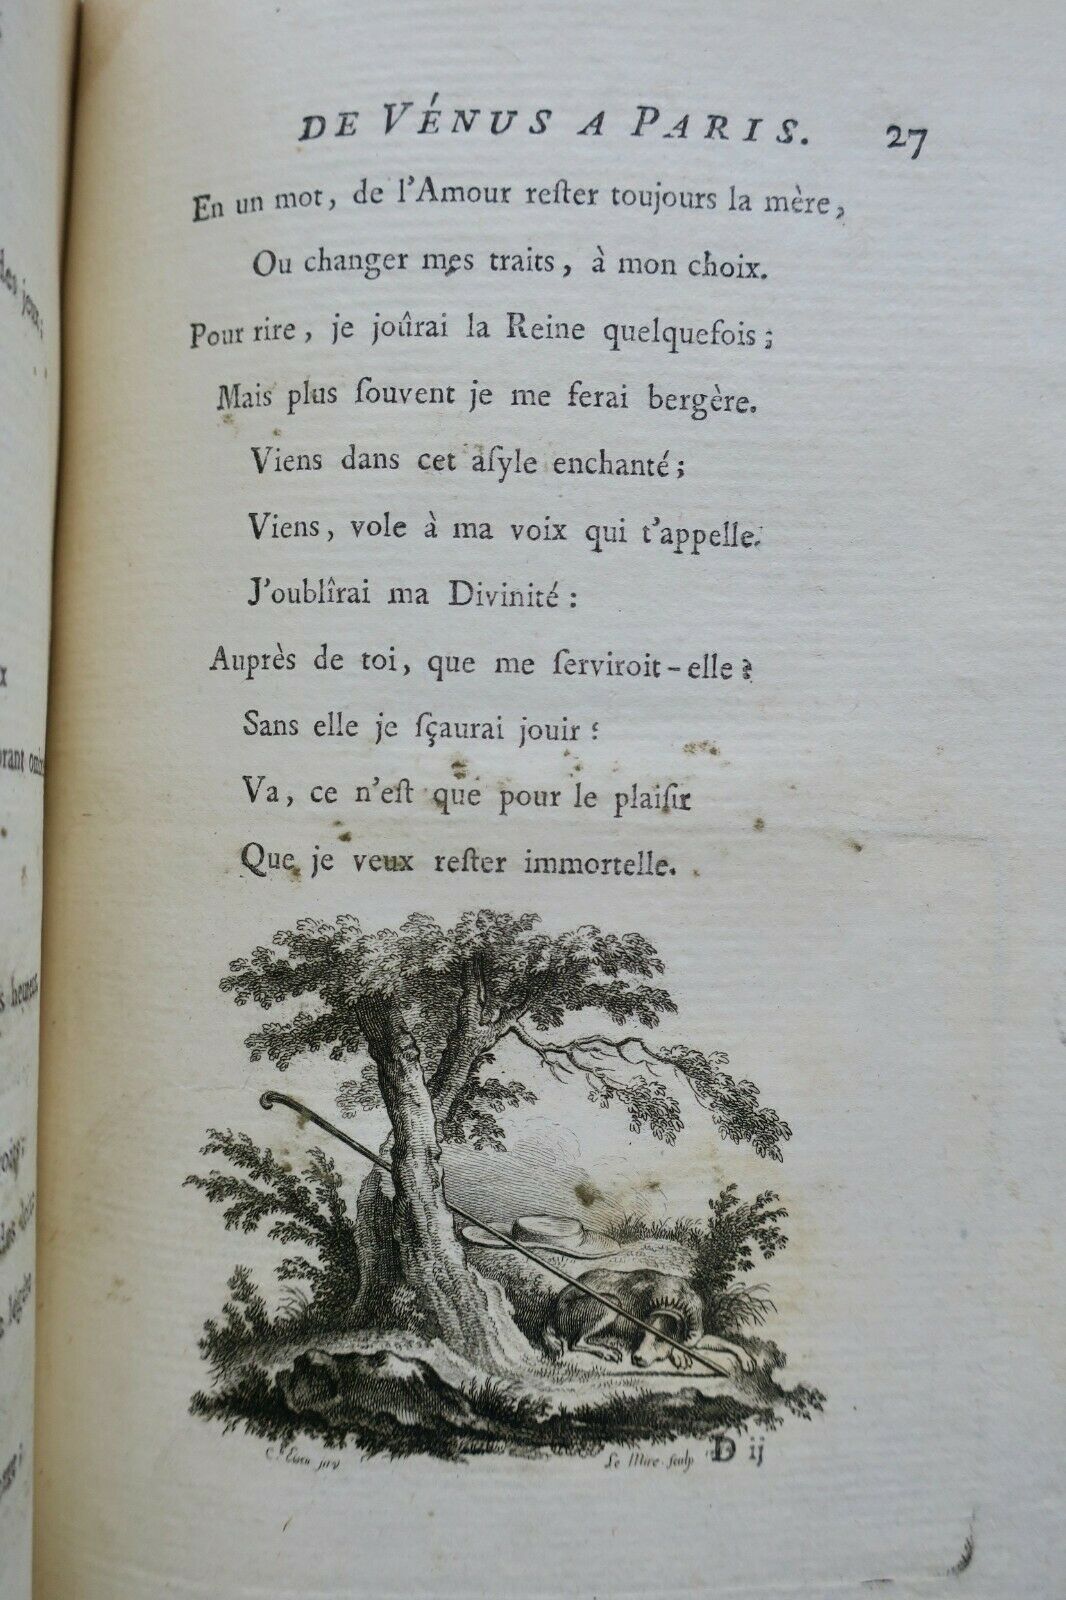 DE VÉNUS A PARIS. 27
En un mot, de l'Amour reſter toujours la mère,
Ou changer mes traits, à mon choix.
Pour rire, je joûrai la Reine quelquefois;
Mais plus ſouvent je me ferai bergère.
Viens dans cet aſyle enchanté;
Viens, vole à ma voix qui t'appelle.
J'oublîrai ma Divinité:
Auprès de toi, que me ſerviroit-elle?
Sans elle je ſçaurai jouir:
Va, ce n'eſt que pour le plaiſir
Que je veux reſter immortelle.
C. Eisen
Le Mire sculp
D ij
des jeux;
rant
heureux